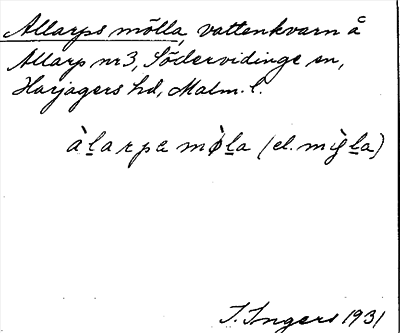 Allarps mölla, vattenkvarn å
Allarp nr 3, Södervidinge sn,
Harjagers hd, Malm. l.
àlarpa møla (el. mìgla)
I. Ingers 1931